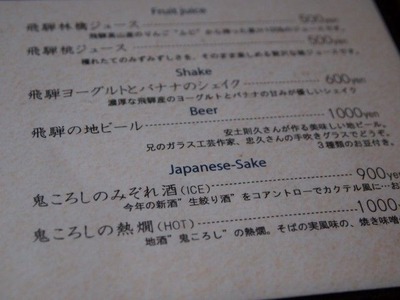 Fruit juice
飛騨林檎ジュース 500yen
飛騨高山産のりんご“ふじ”から搾った
飛騨桃ジュース 500yen
穫れたてのみずみずしさを、そのまま楽しめる贅沢な桃ジュースです。
Shake
飛騨ヨーグルトとバナナのシェイク 600yen
濃厚な飛騨産のヨーグルトとバナナの甘みが優しいシェイク
Beer
飛騨の地ビール 1000yen
安土則久さんが作る美味しい地ビール。
兄のガラス工芸作家、忠久さんの手吹きグラスでどうぞ。
3種類のお豆付き。
Japanese-Sake
鬼ころしのみぞれ酒(ICE) 900yen
今年の新酒”生絞り酒”をコアントローでカクテル風に…お
鬼ころしの熱燗(HOT) 1000
地酒”鬼ころし”の熱燗。そばの実風味の、焼き味噌